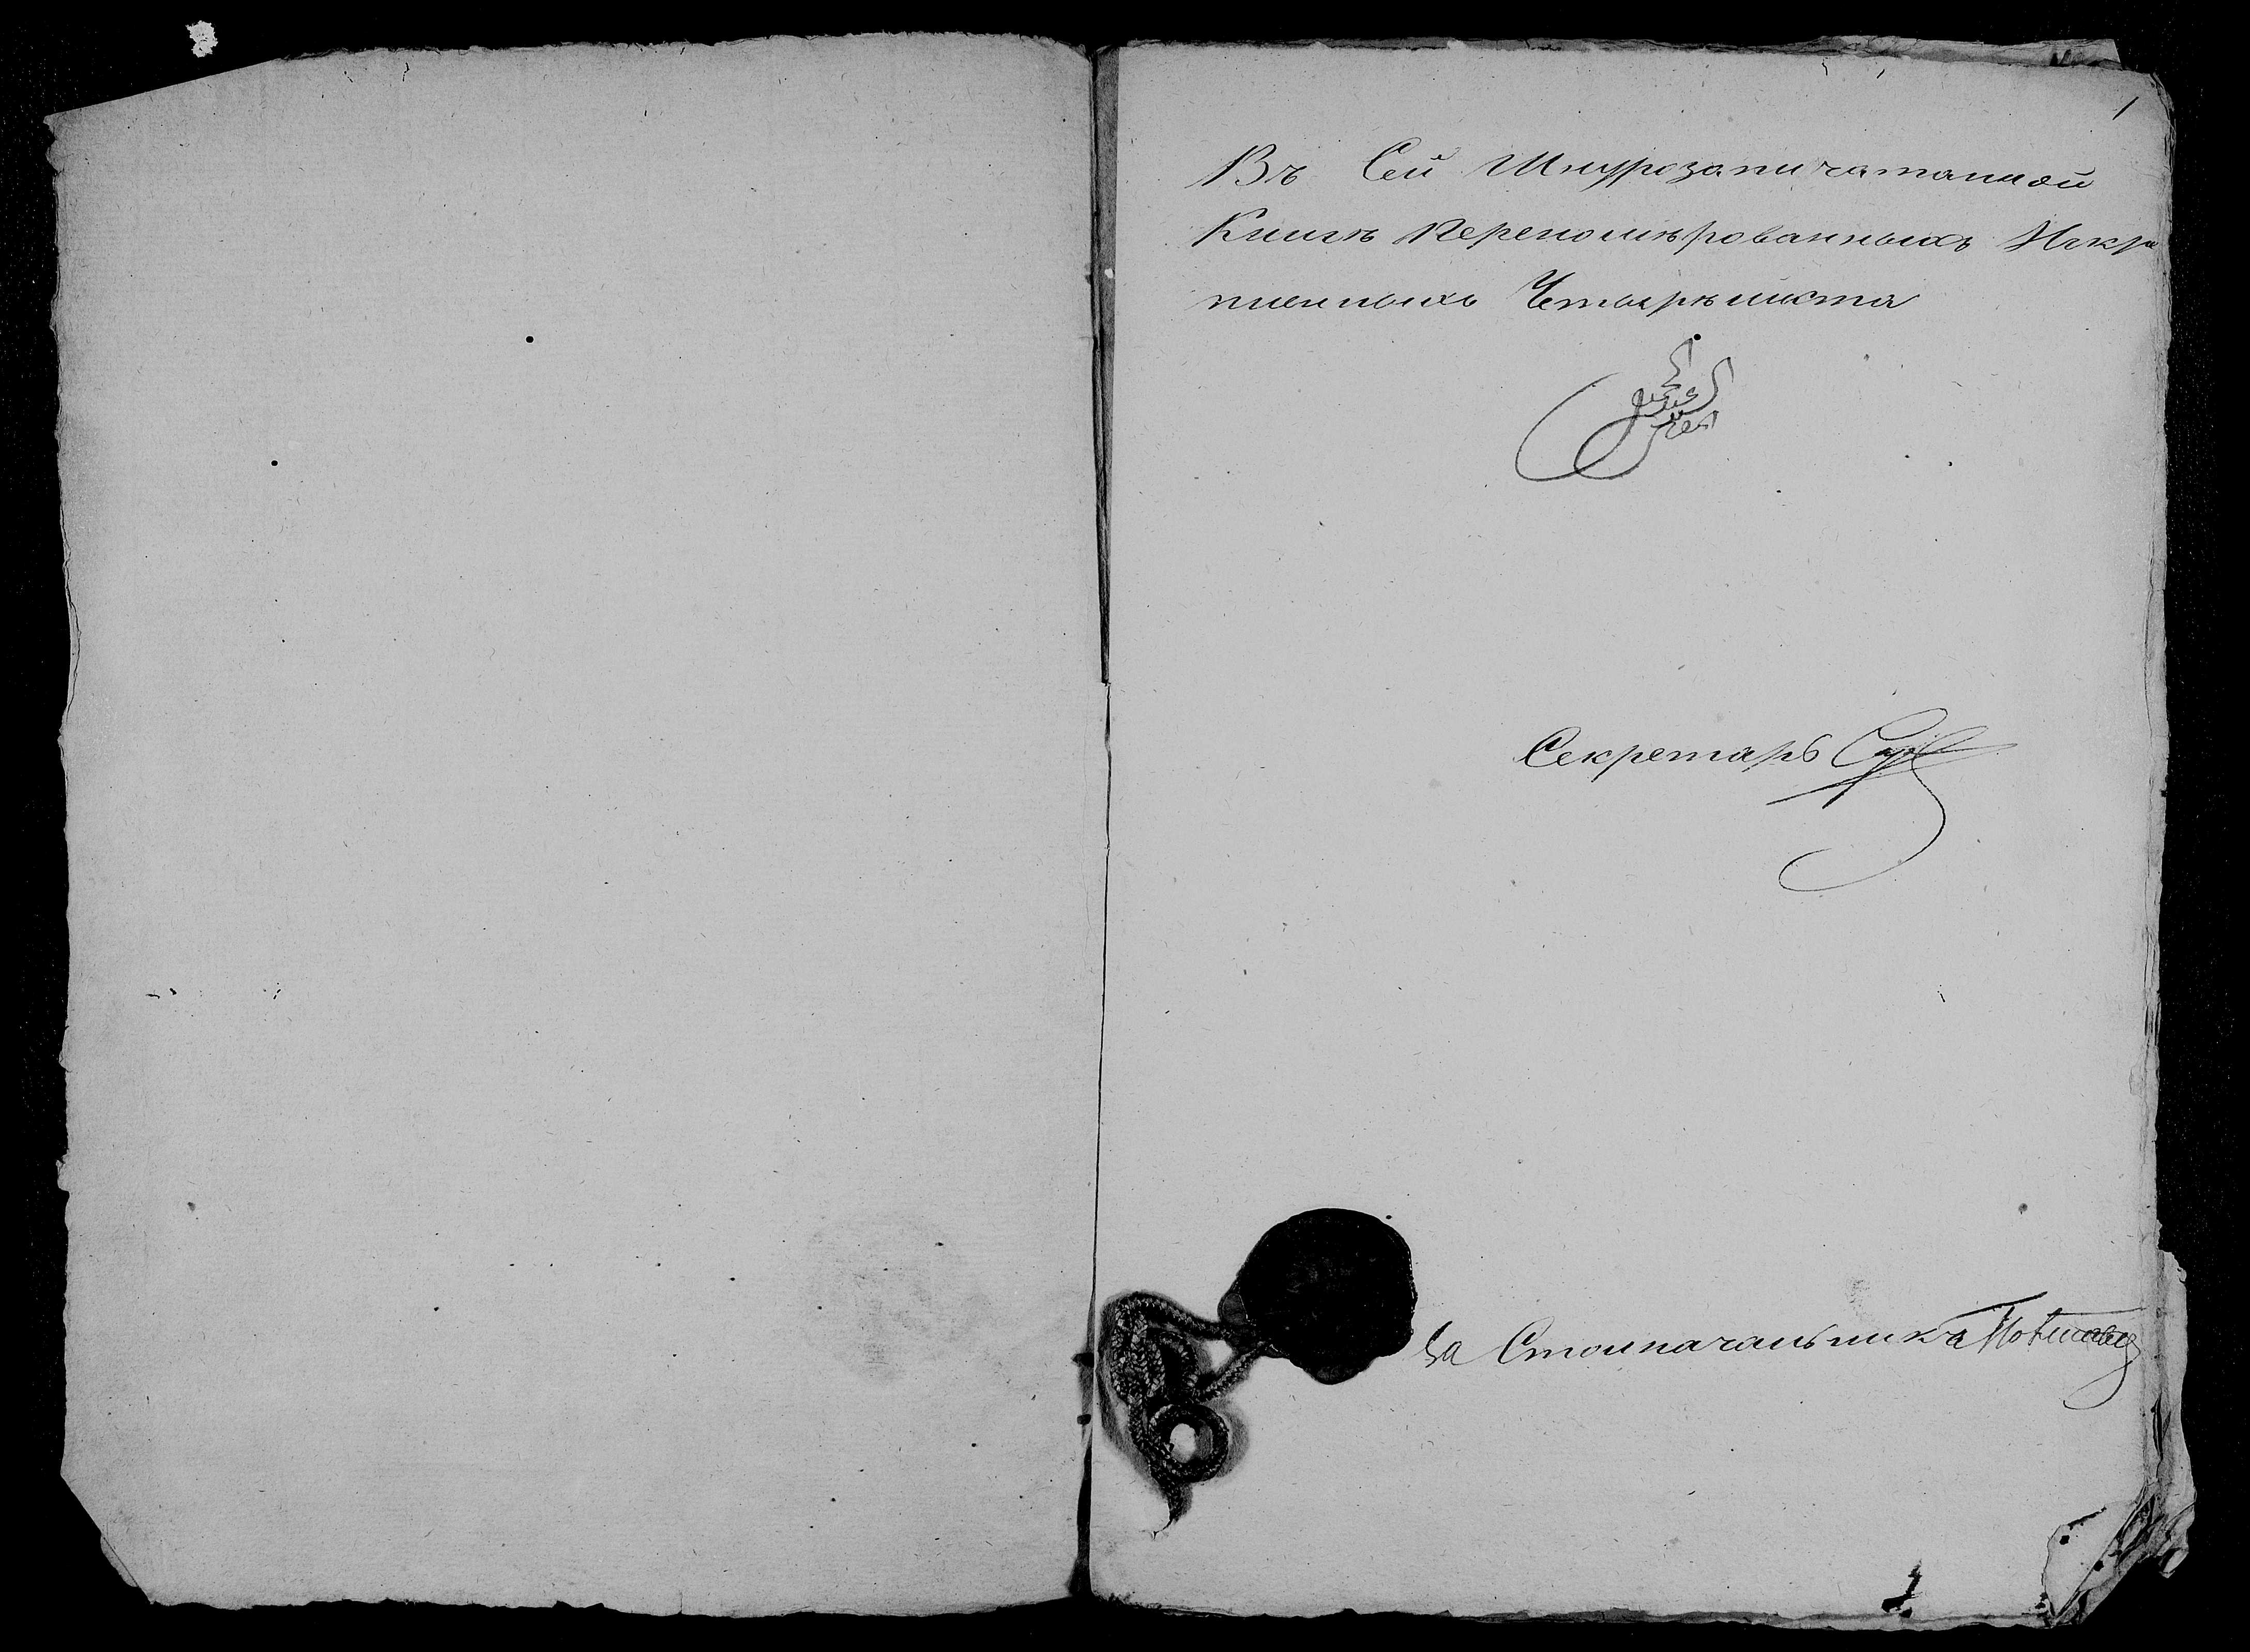 1
Въ Сей Шнурозапичатанной
Книгѣ Переномѣрованныхъ Искрѣ
пленныхъ Четырѣ листа
Секретарь
За Столначальника